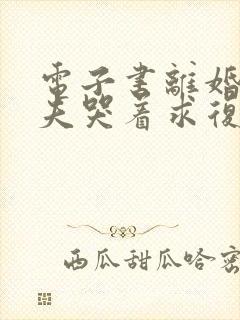 電子書離婚
夫哭着求復
西瓜甜瓜哈密